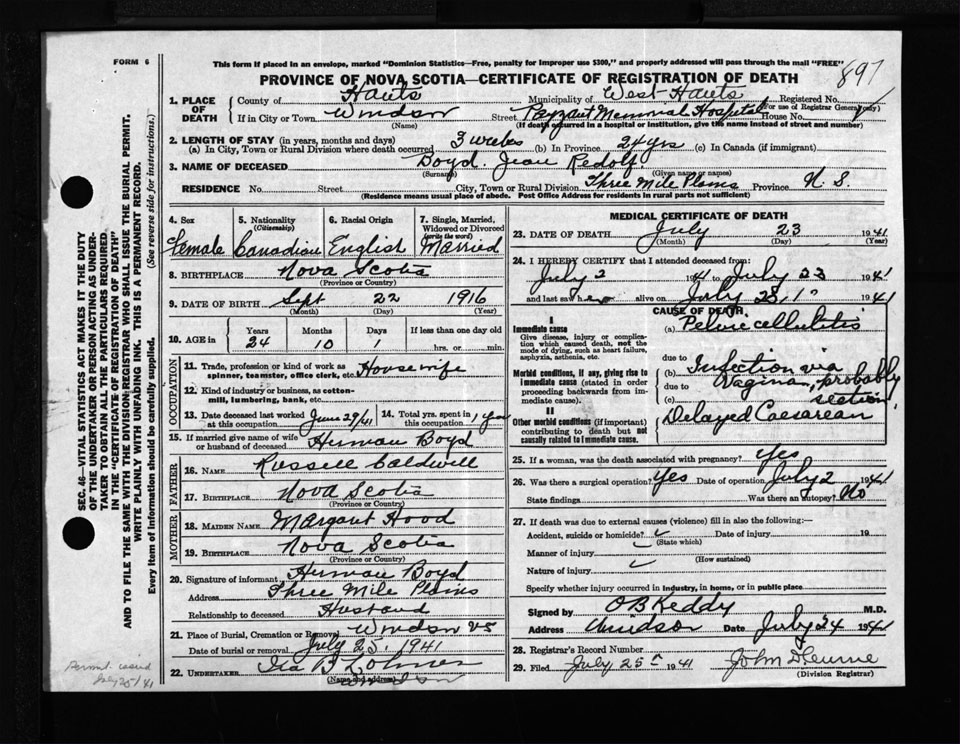 FORM 6
This form if placed in an envelope, marked "Dominion Statistics—Free, penalty for improper use $300," and properly addressed will pass through the mail "FREE"
PROVINCE OF NOVA SCOTIA—CERTIFICATE OF REGISTRATION OF DEATH
897
1. PLACE OF DEATH
County of Hants Municipality of West Hants Registered No.
(For use of Registrar General only)
If in City or Town Windsor Street Payzant Memorial Hospital House No.
(Name) (If death occurred in a hospital or institution, give the name instead of street and number)
2. LENGTH OF STAY (in years, months and days)
(a) In City, Town or Rural Division where death occurred 3 weeks (b) In Province 24 yrs (c) In Canada (if immigrant)
3. NAME OF DECEASED Boyd. Jean Redolf
(Surname) (Given name or names)
RESIDENCE No. Street City, Town or Rural Division Three Mile Plains Province N. S.
(Residence means usual place of abode. Post Office Address for residents in rural parts not sufficient)
4. Sex 5. Nationality (Citizenship) 6. Racial Origin 7. Single, Married, Widowed or Divorced (write the word)
Female Canadian English Married
8. BIRTHPLACE Nova Scotia
(Province or Country)
9. DATE OF BIRTH Sept 22 1916
(Month) (Day) (Year)
10. AGE in Years Months Days If less than one day old
24 10 1 hrs. or min.
OCCUPATION
11. Trade, profession or kind of work as spinner, teamster, office clerk, etc. Housewife
12. Kind of industry or business, as cotton-mill, lumbering, bank, etc.
13. Date deceased last worked at this occupation June 29/41 14. Total yrs. spent in this occupation 1 year
15. If married give name of wife or husband of deceased Herman Boyd
FATHER
16. NAME Russell Caldwell
17. BIRTHPLACE Nova Scotia
(Province or Country)
MOTHER
18. MAIDEN NAME Margaret Hood
19. BIRTHPLACE Nova Scotia
(Province or Country)
20. Signature of informant Herman Boyd
Address Three Mile Plains
Relationship to deceased Husband
21. Place of Burial, Cremation or Removal Windsor
Date of burial or removal July 25. 1941
22. UNDERTAKER Ira B
(Name and address)
Windsor
MEDICAL CERTIFICATE OF DEATH
23. DATE OF DEATH July 23 1941
(Month) (Day) (Year)
24. I HEREBY CERTIFY that I attended deceased from:
July 2 1941 to July 23 1941
and last saw her alive on July 23 1941
CAUSE OF DEATH
I
Immediate cause
Give disease, injury or complication which caused death, not the mode of dying, such as heart failure, asphyxia, asthenia, etc.
(a) Pelvic cellulitis
due to
Morbid conditions, if any, giving rise to immediate cause (stated in order proceeding backwards from immediate cause).
(b) Infection via
due to Vagina, probably
(c) section
II
Other morbid conditions (if important) contributing to death but not causally related to immediate cause.
Delayed Caesarean
25. If a woman, was the death associated with pregnancy? yes
26. Was there a surgical operation? Yes Date of operation July 2 1941
State findings Was there an autopsy? No
27. If death was due to external causes (violence) fill in also the following:—
Accident, suicide or homicide? Date of injury 19
(State which)
Manner of injury
(How sustained)
Nature of injury
Specify whether injury occurred in industry, in home, or in public place
Signed by O B Keddy M.D.
Address Windsor Date July 24 1941
28. Registrar's Record Number
29. Filed July 25 1941 John
(Division Registrar)
SEC. 46—VITAL STATISTICS ACT MAKES IT THE DUTY
OF THE UNDERTAKER OR PERSON ACTING AS UNDER-
TAKER TO OBTAIN ALL THE PARTICULARS REQUIRED.
IN THE "CERTIFICATE OF REGISTRATION OF DEATH"
AND TO FILE THE SAME WITH THE DIVISION REGISTRAR WHO SHALL ISSUE THE BURIAL PERMIT.
WRITE PLAINLY WITH UNFADING INK. THIS IS A PERMANENT RECORD.
Every item of information should be carefully supplied. (See reverse side for instructions.)
Permit issued
July 25/41